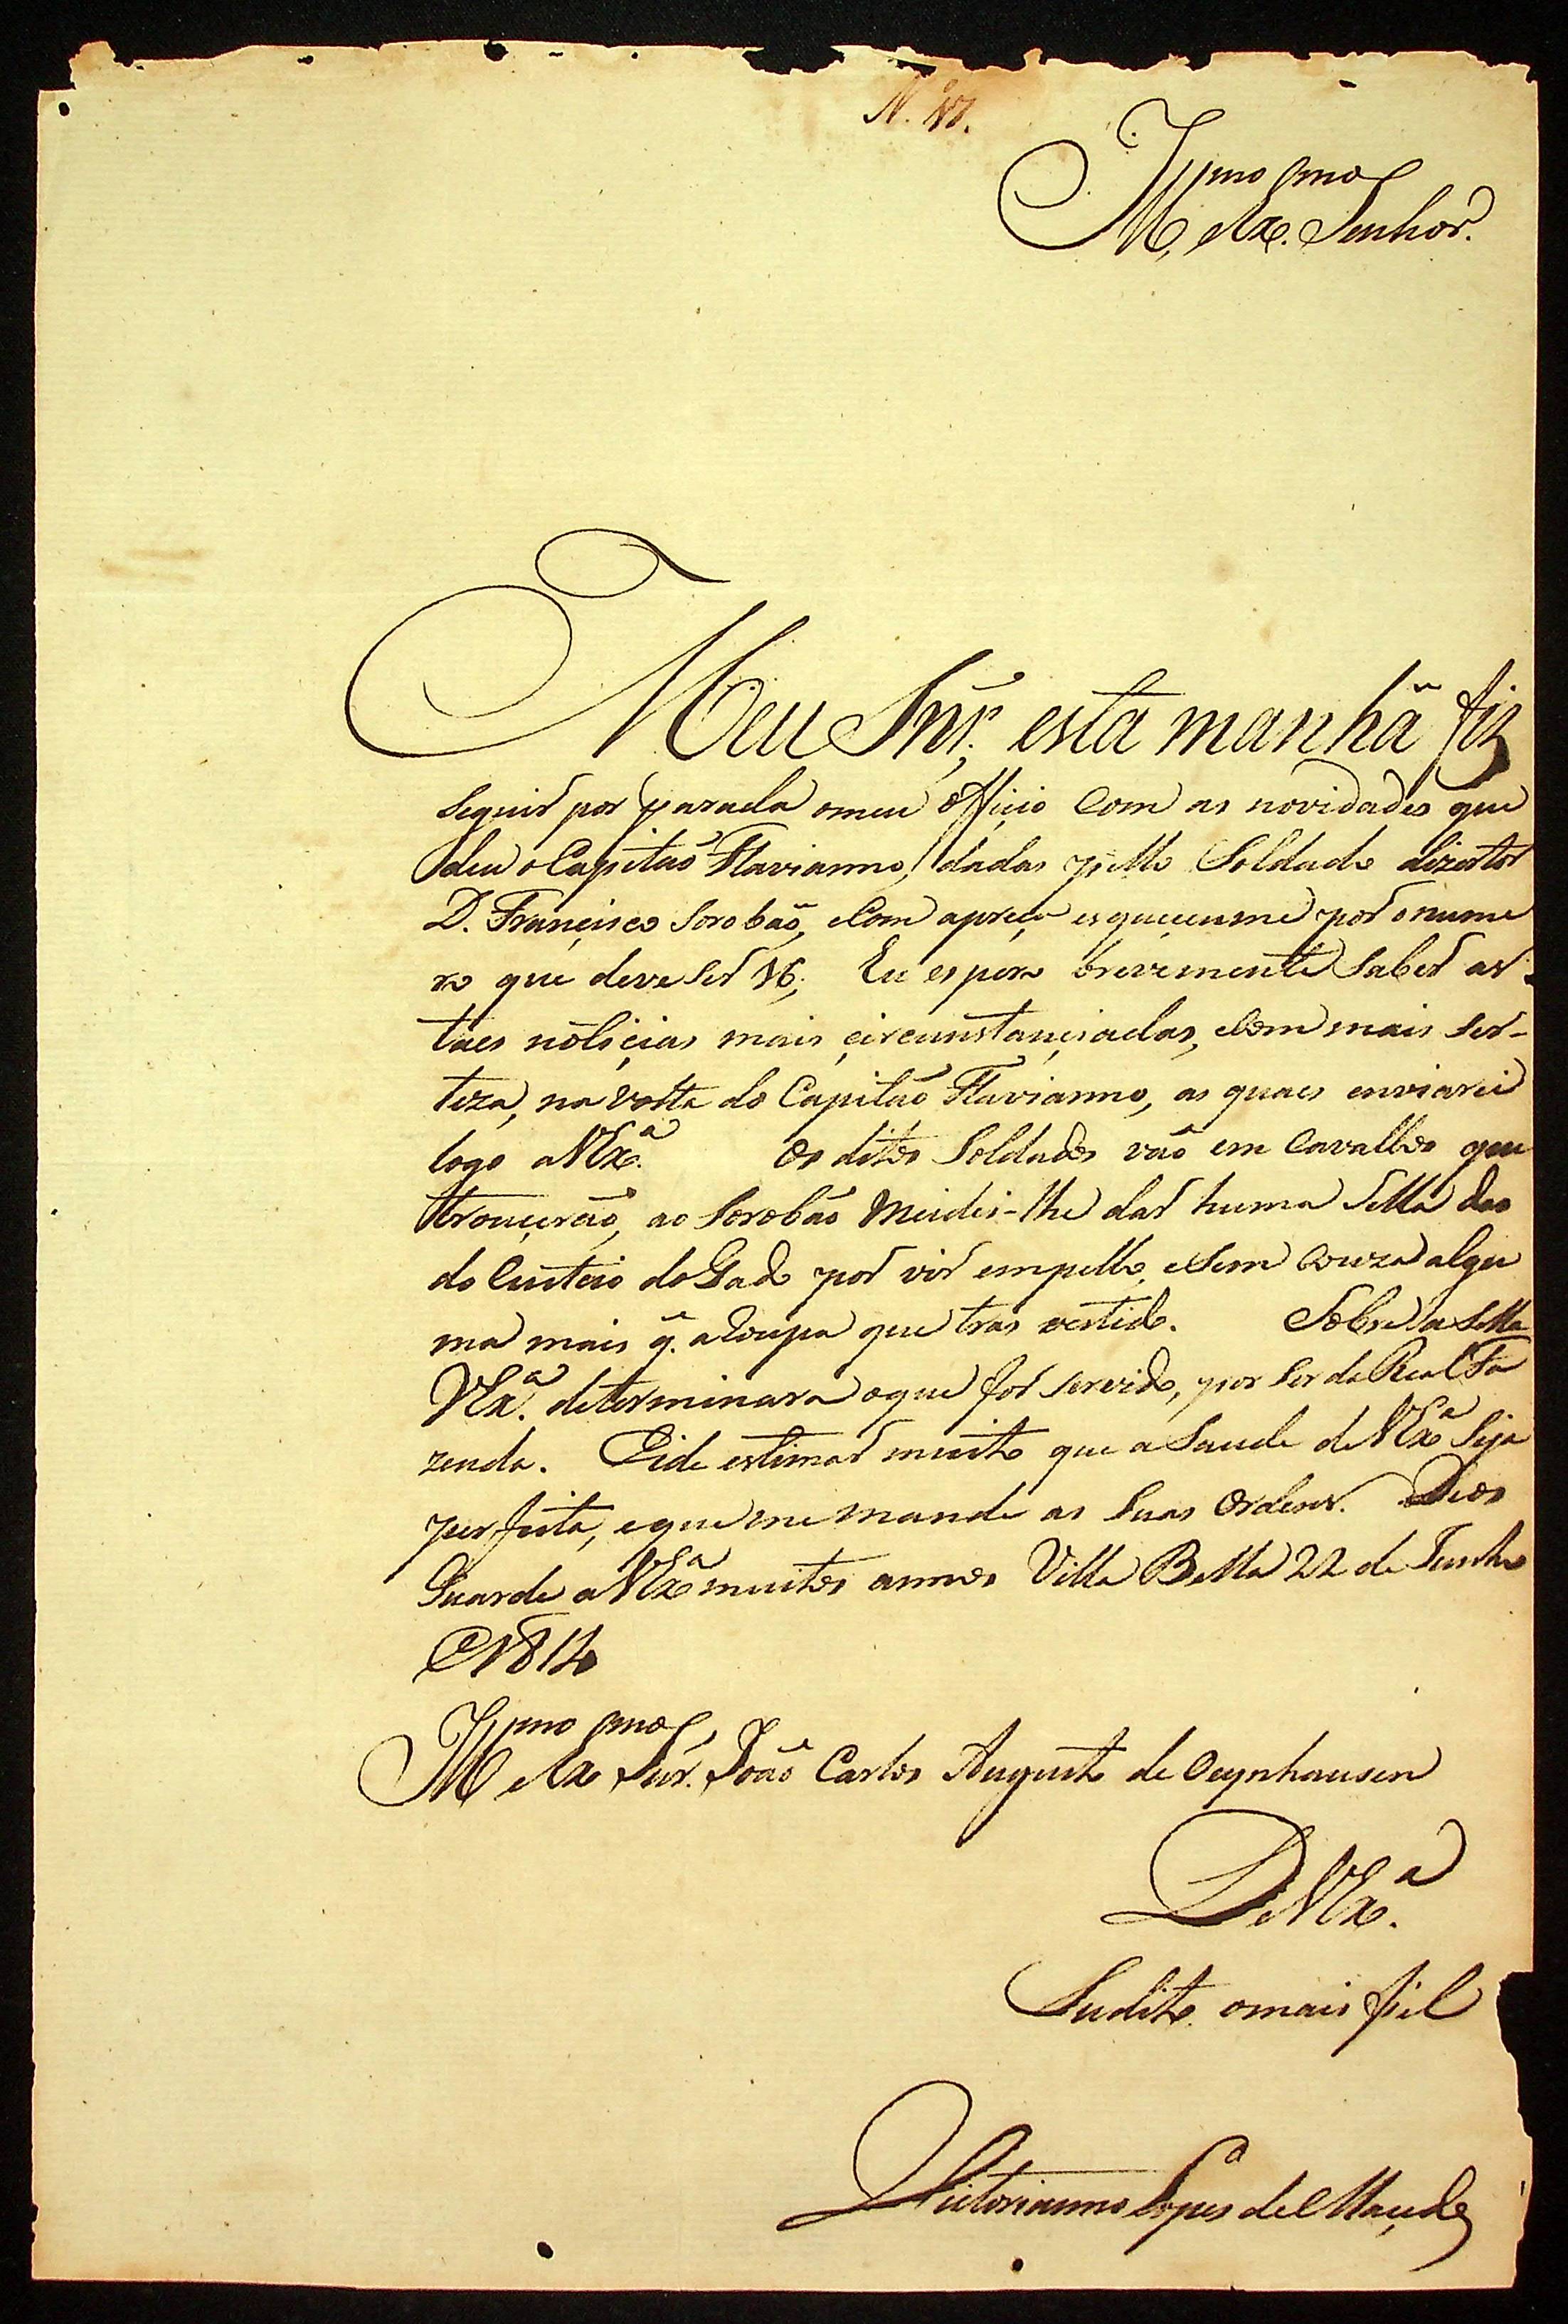 N.º 17.
Ill.mo Ex.mo Senhor.
Meu Snr., esta manhã fiz
seguir por parada o meu Officio Com as novidades que
deu o Capitaõ Flavianno, dadas pello Soldado dizertor
D. Françisco Sorobaõ, e Com a preça esqueçeume por o nume
ro que deve ser 16; Eu espero brevemente saber as
taes notiçias mais çircunstançiadas, e Com mais ser-
teza, na volta do Capitaõ Flavianno, as quaes enviarei
logo a VEx.ª Os ditos Soldados vaõ em Cavallos que
trouçeraõ, ao Sorobaõ Mandei-lhe dar huma Sella das
do Custeio do Gado por vir em pello, e sem Couza algu
ma mais q. a roupa que tras vestido. Sobre a Sella
VEx.ª determinara o que for servido, por ser da Real Fa
zenda. Eide estimar muito que a Saude de VEx.ª Seja
perfeita, e que me mande as Suas Ordens. Deos
Guarde a VEx.ª muitos annos Villa Bella 22 de Junho
de 1812
Ill.mo e Ex.mo Snr. Joaõ Carlos Augusto de Oeynhausen
De VEx.ª
Sudito o mais fiel
Victorianno Lopes de Maçedo